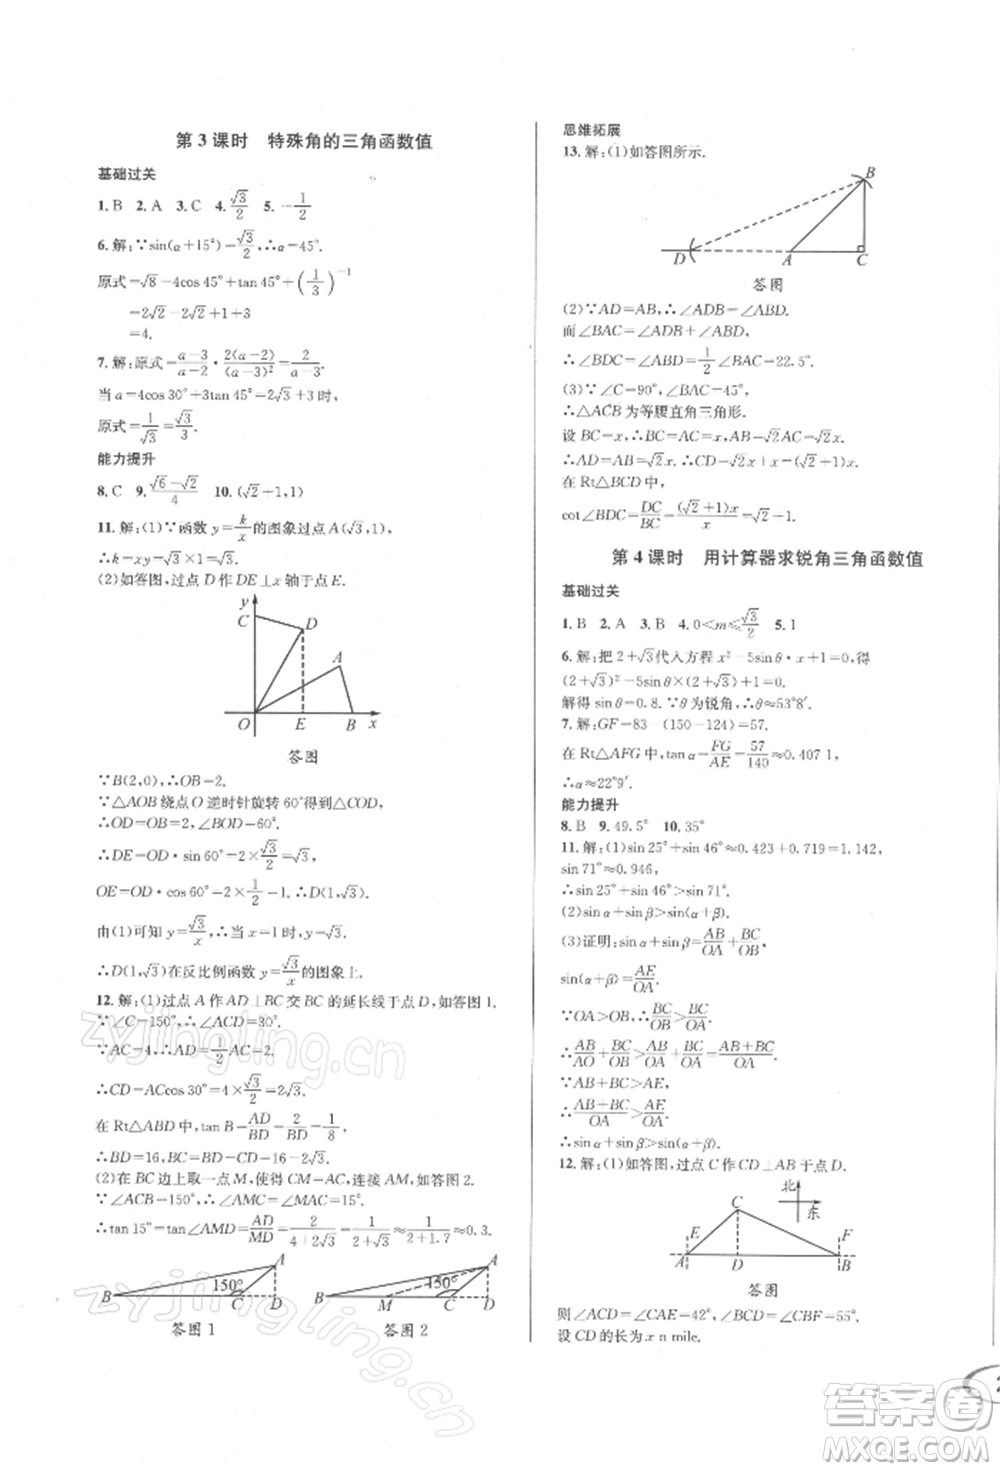 第 3 课时　特殊角的三角函数值
基础过关
1. B　2. A　3. C　4. √3/2　5. -1/2
6. 解:∵sin(α+15°)=√3/2,∴α=45°.
原式=√8-4cos 45°+tan 45°+(1/3)⁻¹
=2√2-2√2+1+3
=4.
7. 解:原式=(a-3)/(a-2)·2(a-2)/(a-3)²=2/(a-3).
当 a=4cos 30°+3tan 45°=2√3+3 时,
原式=1/√3=√3/3.
能力提升
8. C　9. (√6-√2)/4　10. (√2+1,1)
11. 解:(1)∵函数 y=k/x 的图象过点 A(√3,1),
∴k=xy=√3.
(2)如答图,过点 D 作 DE⊥x 轴于点 E.
y
C
D
A
O　E　B　x
答图
∵B(2,0),∴OB=2.
∵△AOB 绕点 O 逆时针旋转 60°得到△COD,
∴OD=OB=2,∠BOD=60°.
∴DE=OD·sin 60°=2×√3/2=√3,
OE=OD·cos 60°=2×1/2=1.∴D(1,√3)
由(1)可知 y=√3/x,∴当 x=1 时,y=√3.
∴D(1,√3)在反比例函数 y=√3/x 的图象上.
12. 解:(1)过点 A 作 AD⊥BC 交 BC 的延长线于点 D,如答图 1.
∵∠C=150°,∴∠ACD=30°.
∵AC=4,∴AD=1/2AC=2.
∴CD=ACcos 30°=4×√3/2=2√3.
在 Rt△ABD 中,tan B=AD/BD=2/BD=1/8,
∴BD=16,∴BC=BD-CD=16-2√3.
(2)在 BC 边上取一点 M,使得 CM=AC,连接 AM,如答图 2.
∵∠ACB=150°,∴∠AMC=∠MAC=15°.
∴tan 15°=tan∠AMD=AD/MD=2/(4+2√3)=1/(2+√3)≈1/(2+1.7)≈0.3.
A
B　150°　C　D
答图 1
A
B　M　150°　C　D
答图 2
思维拓展
13. 解:(1)如答图所示.
B
D　A　C
答图
(2)∵AD=AB,∴∠ADB=∠ABD.
而∠BAC=∠ADB+∠ABD,
∴∠BDC=∠ABD=1/2∠BAC=22.5°.
(3)∵∠C=90°,∠BAC=45°,
∴△ACB 为等腰直角三角形.
设 BC=x,∴BC=AC=x,AB=√2AC=√2x.
∴AD=AB=√2x.∴CD=√2x+x=(√2+1)x.
在 Rt△BCD 中,
cot∠BDC=DC/BC=(√2+1)x/x=√2+1.
第 4 课时　用计算器求锐角三角函数值
基础过关
1. B　2. A　3. B　4. 0<m≤√3/2　5. 1
6. 解:把 2+√3代入方程 x²-5sin θ·x+1=0,得
(2+√3)²-5sin θ×(2+√3)+1=0.
解得 sin θ=0.8.∵θ 为锐角,∴θ≈53°8′.
7. 解:GF=83-(150-124)=57.
在 Rt△AFG 中,tan α=FG/AE=57/140≈0.407 1,
∴α≈22°9′.
能力提升
8. B　9. 49.5°　10. 35°
11. 解:(1)sin 25°+sin 46°≈0.423+0.719=1.142,
sin 71°≈0.946,
∴sin 25°+sin 46°>sin 71°.
(2)sin α+sin β>sin(α+β).
(3)证明:sin α+sin β=AB/OA+BC/OB,
sin(α+β)=AE/OA.
∵OA>OB,∴BC/OB>BC/OA.
∴AB/AO+BC/OB>AB/OA+BC/OA=(AB+BC)/OA.
∵AB+BC>AE,
∴(AB+BC)/OA>AE/OA.
∴sin α+sin β>sin(α+β).
12. 解:(1)如答图,过点 C 作 CD⊥AB 于点 D.
北
东
E　C　F
A　D　B
答图
则∠ACD=∠CAE=42°,∠BCD=∠CBF=55°.
设 CD 的长为 x n mile.
zyjingling.cn
zyjingling.cn
答案卷
MXQE.COM